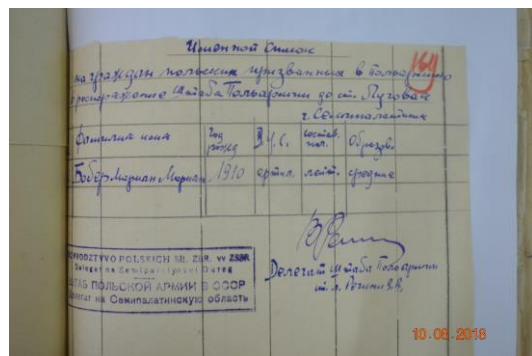 Именной список
164
на граждан польских призванных в Польармию
в распоряжение Штаба Польармии до ст. Луговая
г. Семипалатинск
Фамилия имя Год рожд В.У.С. состав. Образов.
Бобер Мариан Мариан 1910 артил. лейт. средние
DOWODZTWO POLSKICH SIŁ ZBR. W ZSRR
Delegat na Semipałatyński Okręg
ШТАБ ПОЛЬСКОЙ АРМИИ В СССР
Делегат на Семипалатинскую область
Делегат Штаба Польармии
10.08.2018